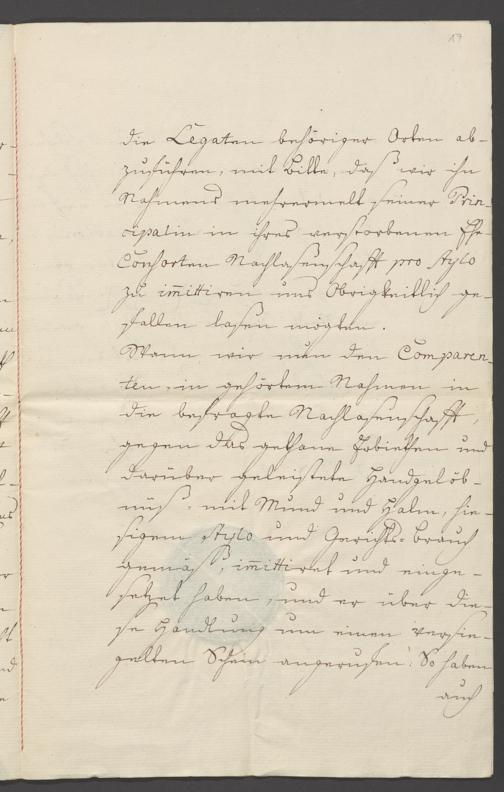 19
die Legaten behöriger Orten ab-
zuführen, mit Bitte, daß wir ihn
Nahmens mehrermelt seiner Prin-
cipalin in ihres verstorbenen Ehe-
Consorten Nachlasenschafft pro stylo
zu im̄ittiren uns Obrigkeitlich ge-
fallen lasen mögten.
Wann wir nun den Comparen-
ten, in gehörtem Nahmen in
die besagte Nachlasenschafft,
gegen das gethane Erbietten und
darüber geleistete Handgelöb-
nüß, mit Mund und Halm, hie-
sigem stylo und Gerichts-brauch
gemäß, im̄ittiret und einge-
setzet haben, und er über die-
se Handlung um einen versie-
gelten Schein angerufen: So haben
auch